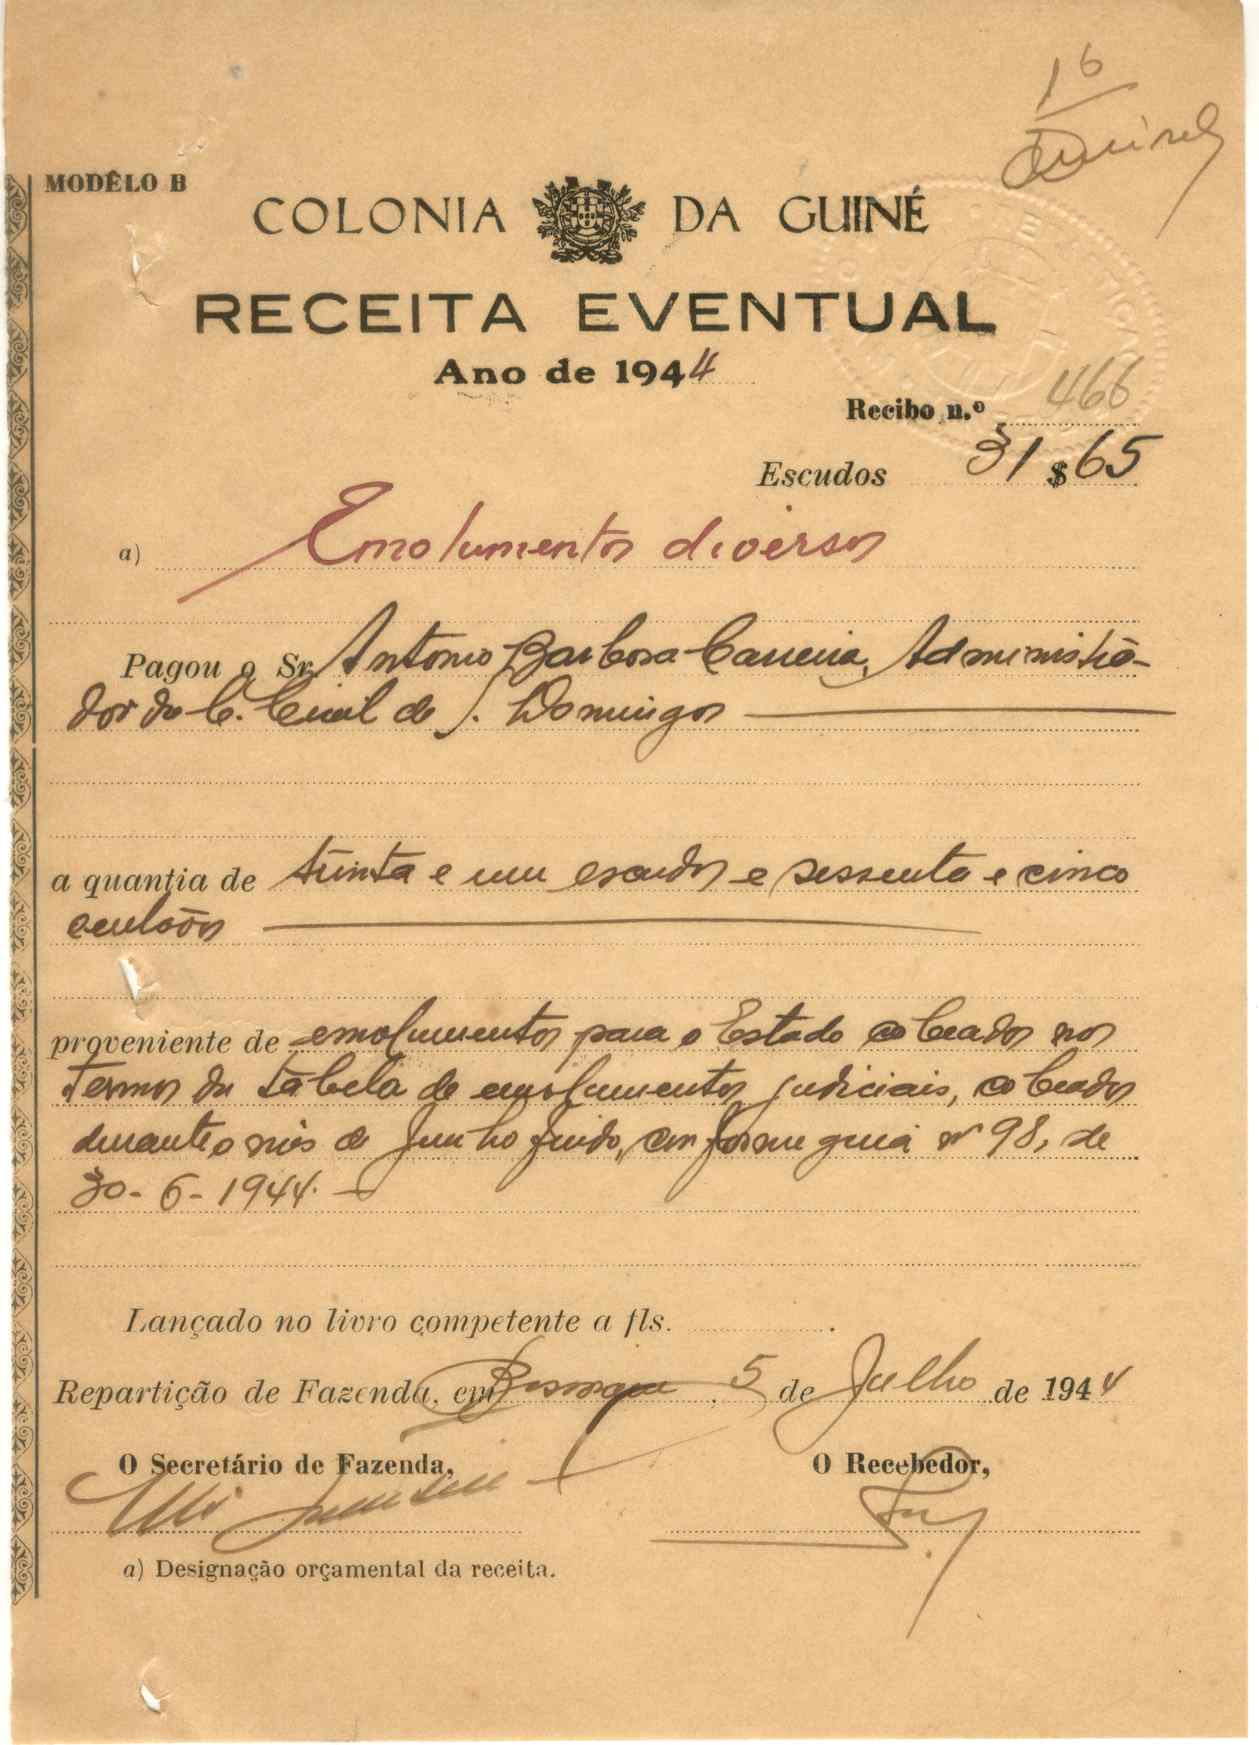 16
MODÊLO B
COLONIA DA GUINÉ
RECEITA EVENTUAL
Ano de 1944
Recibo n.º 466
Escudos 31 $ 65
a) Emolumentos diversos
Pagou o Sr. António Barbosa Carreira, Administra-
dor da C. Civil de S. Domingos
a quantia de trinta e um escudos e sessenta e cinco
centavos
proveniente de emolumentos para o Estado cobrados nos
termos da tabela de emolumentos judiciais, cobrados
durante o mês de Junho findo, conforme guia nº 98, de
30-6-1944.
Lançado no livro competente a fls.
Repartição de Fazenda, em 5 de Julho de 1944
O Secretário de Fazenda,
O Recebedor,
a) Designação orçamental da receita.